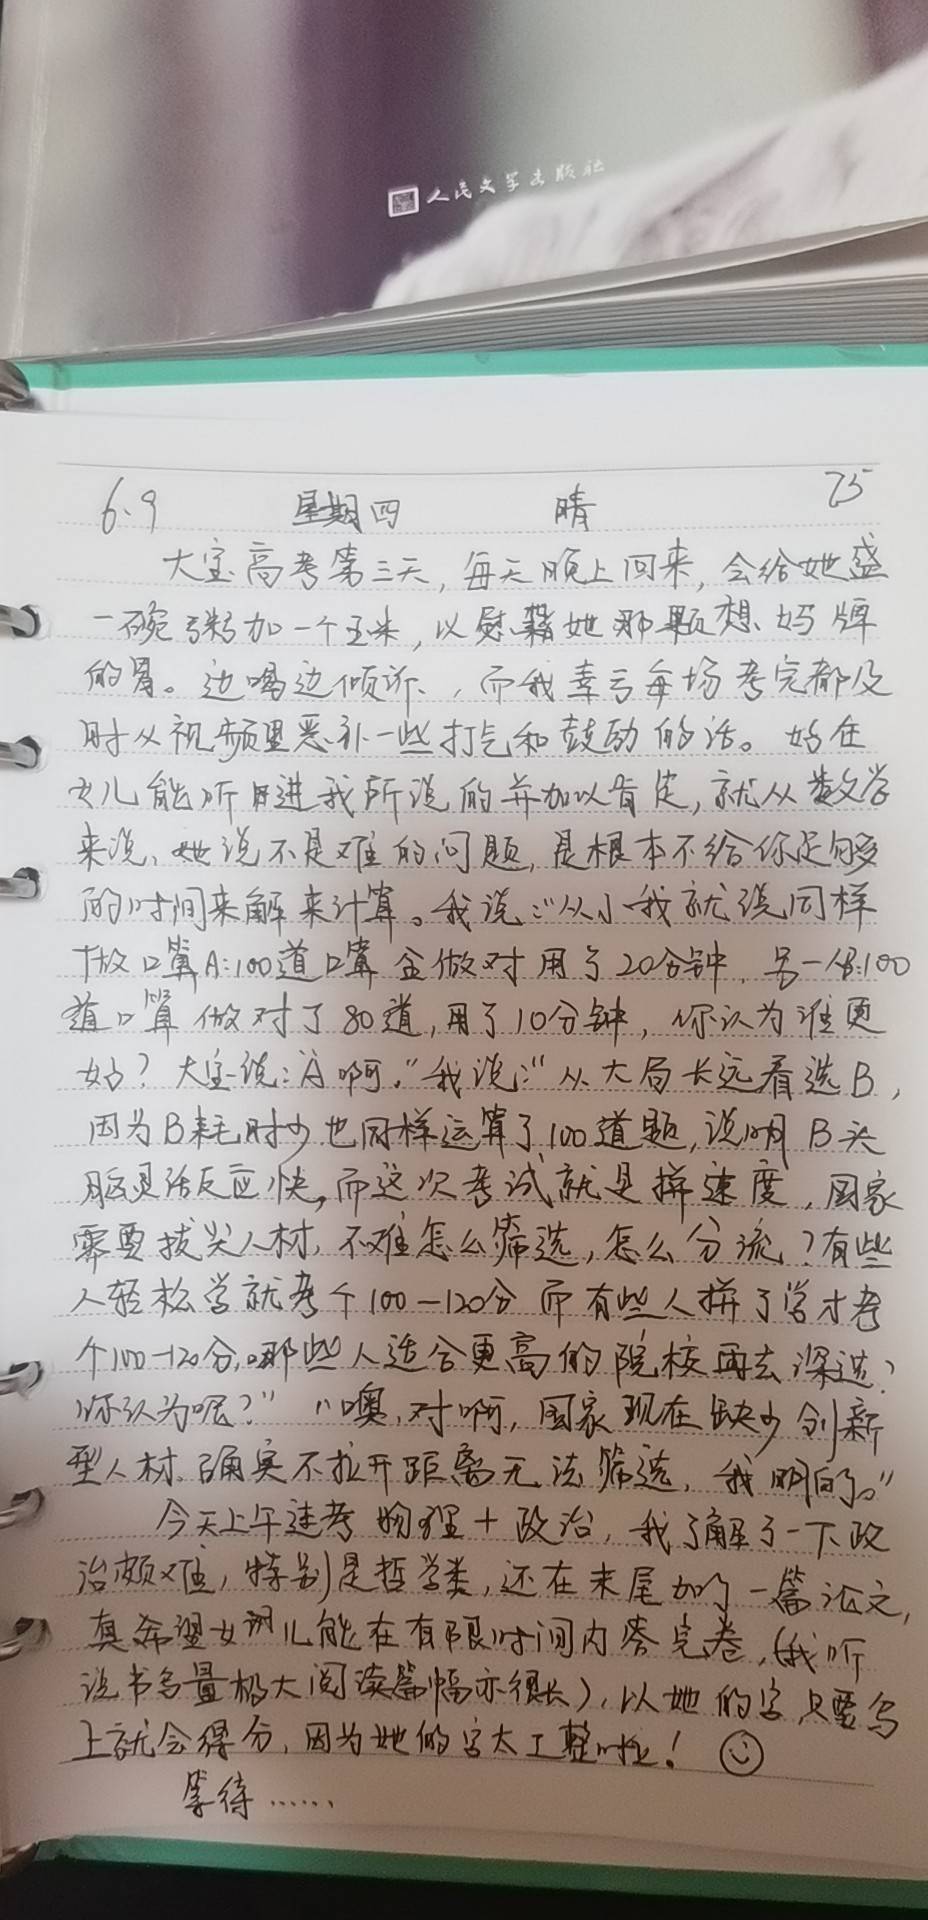 人民文学出版社
6.9 星期四 晴 75
大宝高考第三天,每天晚上回来,会给她盛
一碗粥加一个玉米,以慰藉她那颗想妈牌
的胃。边喝边倾诉,而我幸亏每场考完都及
时从视频里恶补一些打气和鼓励的话。好在
女儿能听进我所说的并加以肯定,就从数学
来说,她说不是难的问题,是根本不给你足够
的时间来解来计算。我说:"从小我就说同样
做口算A:100道口算全做对用了20分钟,另一份:100
道口算做对了80道,用了10分钟,你认为谁更
好?大宝说:A啊。"我说:"从大局长远看选B,
因为B耗时少也同样运算了100道题,说明B头
脑灵活反应快,而这次考试就是拼速度,国家
需要拔尖人材,不难怎么筛选,怎么分流?有些
人轻松学就考个100-120分而有些人拼了学才考
个100-120分,哪些人适合更高的院校再去深造?
你认为呢?""噢,对啊,国家现在缺少创新
型人材,确实不拉开距离无法筛选,我明白了。"
今天上午进考物理+政治,我了解了一下政
治颇难,特别是哲学类,还在末尾加了一篇论文,
真希望女儿能在有限时间内答完卷,(我听
说书写量极大阅读篇幅亦很长),以她的字只要写
上就会得分,因为她的字太工整啦!
等待……